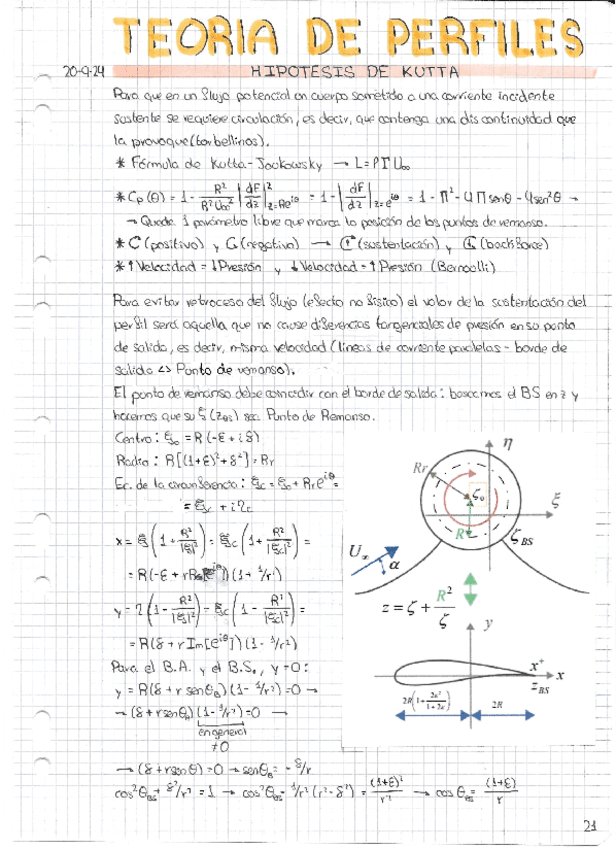 TEORIA DE PERFILES
20-9-24 HIPOTESIS DE KUTTA
Para que en un flujo potencial un cuerpo sometido a una corriente incidente
sustente se requiere circulación, es decir, que contenga una discontinuidad que
la provoque (torbellinos).
* Fórmula de Kutta-Joukowsky → L=ρΓU∞
* Cp(θ) = 1 - R²/(R²U∞²) |dF/dz|²z=Re^iθ = 1 - |dF/dz|²z=e^iθ = 1 - Π² - 4Π senθ - 4sen²θ →
→ Queda 1 parámetro libre que marca la posición de los puntos de remanso.
(positivo) y (negativo) → (sustentación) y (back force)
* ↑Velocidad = ↓Presión y ↓Velocidad = ↑Presión (Bernoulli)
Para evitar retroceso del flujo (efecto no físico) el valor de la sustentación del
perfil será aquella que no cause diferencias tangenciales de presión en su punto
de salida, es decir, misma velocidad (líneas de corriente paralelas - borde de
salida <=> Punto de remanso).
El punto de remanso debe coincidir con el borde de salida: buscamos el BS en z y
hacemos que su ξ(zBS) sea Punto de Remanso.
Centro: ξ₀ = R(-ε + iδ)
Radio: R[(1+ε)²+δ²] = Rr
Ec. de la circunferencia: ξc = ξ₀ + Rr e^iθ =
= ξc + iηc
x = ξ(1 + R²/|ξ|²) = ξc(1 + R²/|ξc|²) =
= R(-ε + r Re[e^iθ])(1 + 1/r²)
y = η(1 - R²/|ξ|²) = ξc(1 - R²/|ξc|²) =
= R(δ + r Im[e^iθ])(1 - 1/r²)
Para el B.A. y el B.S., y=0:
y = R(δ + r senθB)(1 - 1/r²) = 0 →
→ (δ + r senθB)(1 - 1/r²) = 0 →
en general
≠0
→ (δ + r senθ) = 0 → senθB = -δ/r
cos²θBS + δ²/r² = 1 → cos²θBS = 1/r²(r² - δ²) = (1+ε)²/r² → cosθBS = (1+ε)/r
η
Rr
ζ₀
ξ
R
ζBS
U∞
α
z = ζ + R²/ζ
y
x⁺
x
zBS
2R(1 + 2ε²/(1+2ε))
2R
21